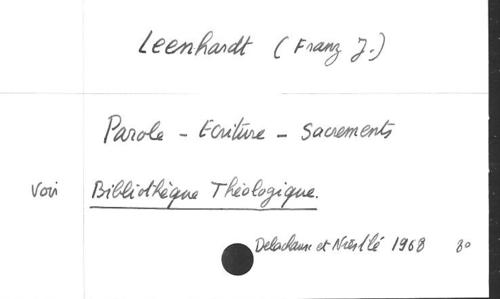 Leenhardt (Franz J.)
Parole - Ecriture - Sacrements
Voir Bibliothèque Théologique.
Delachaux et Niestlé 1968 80